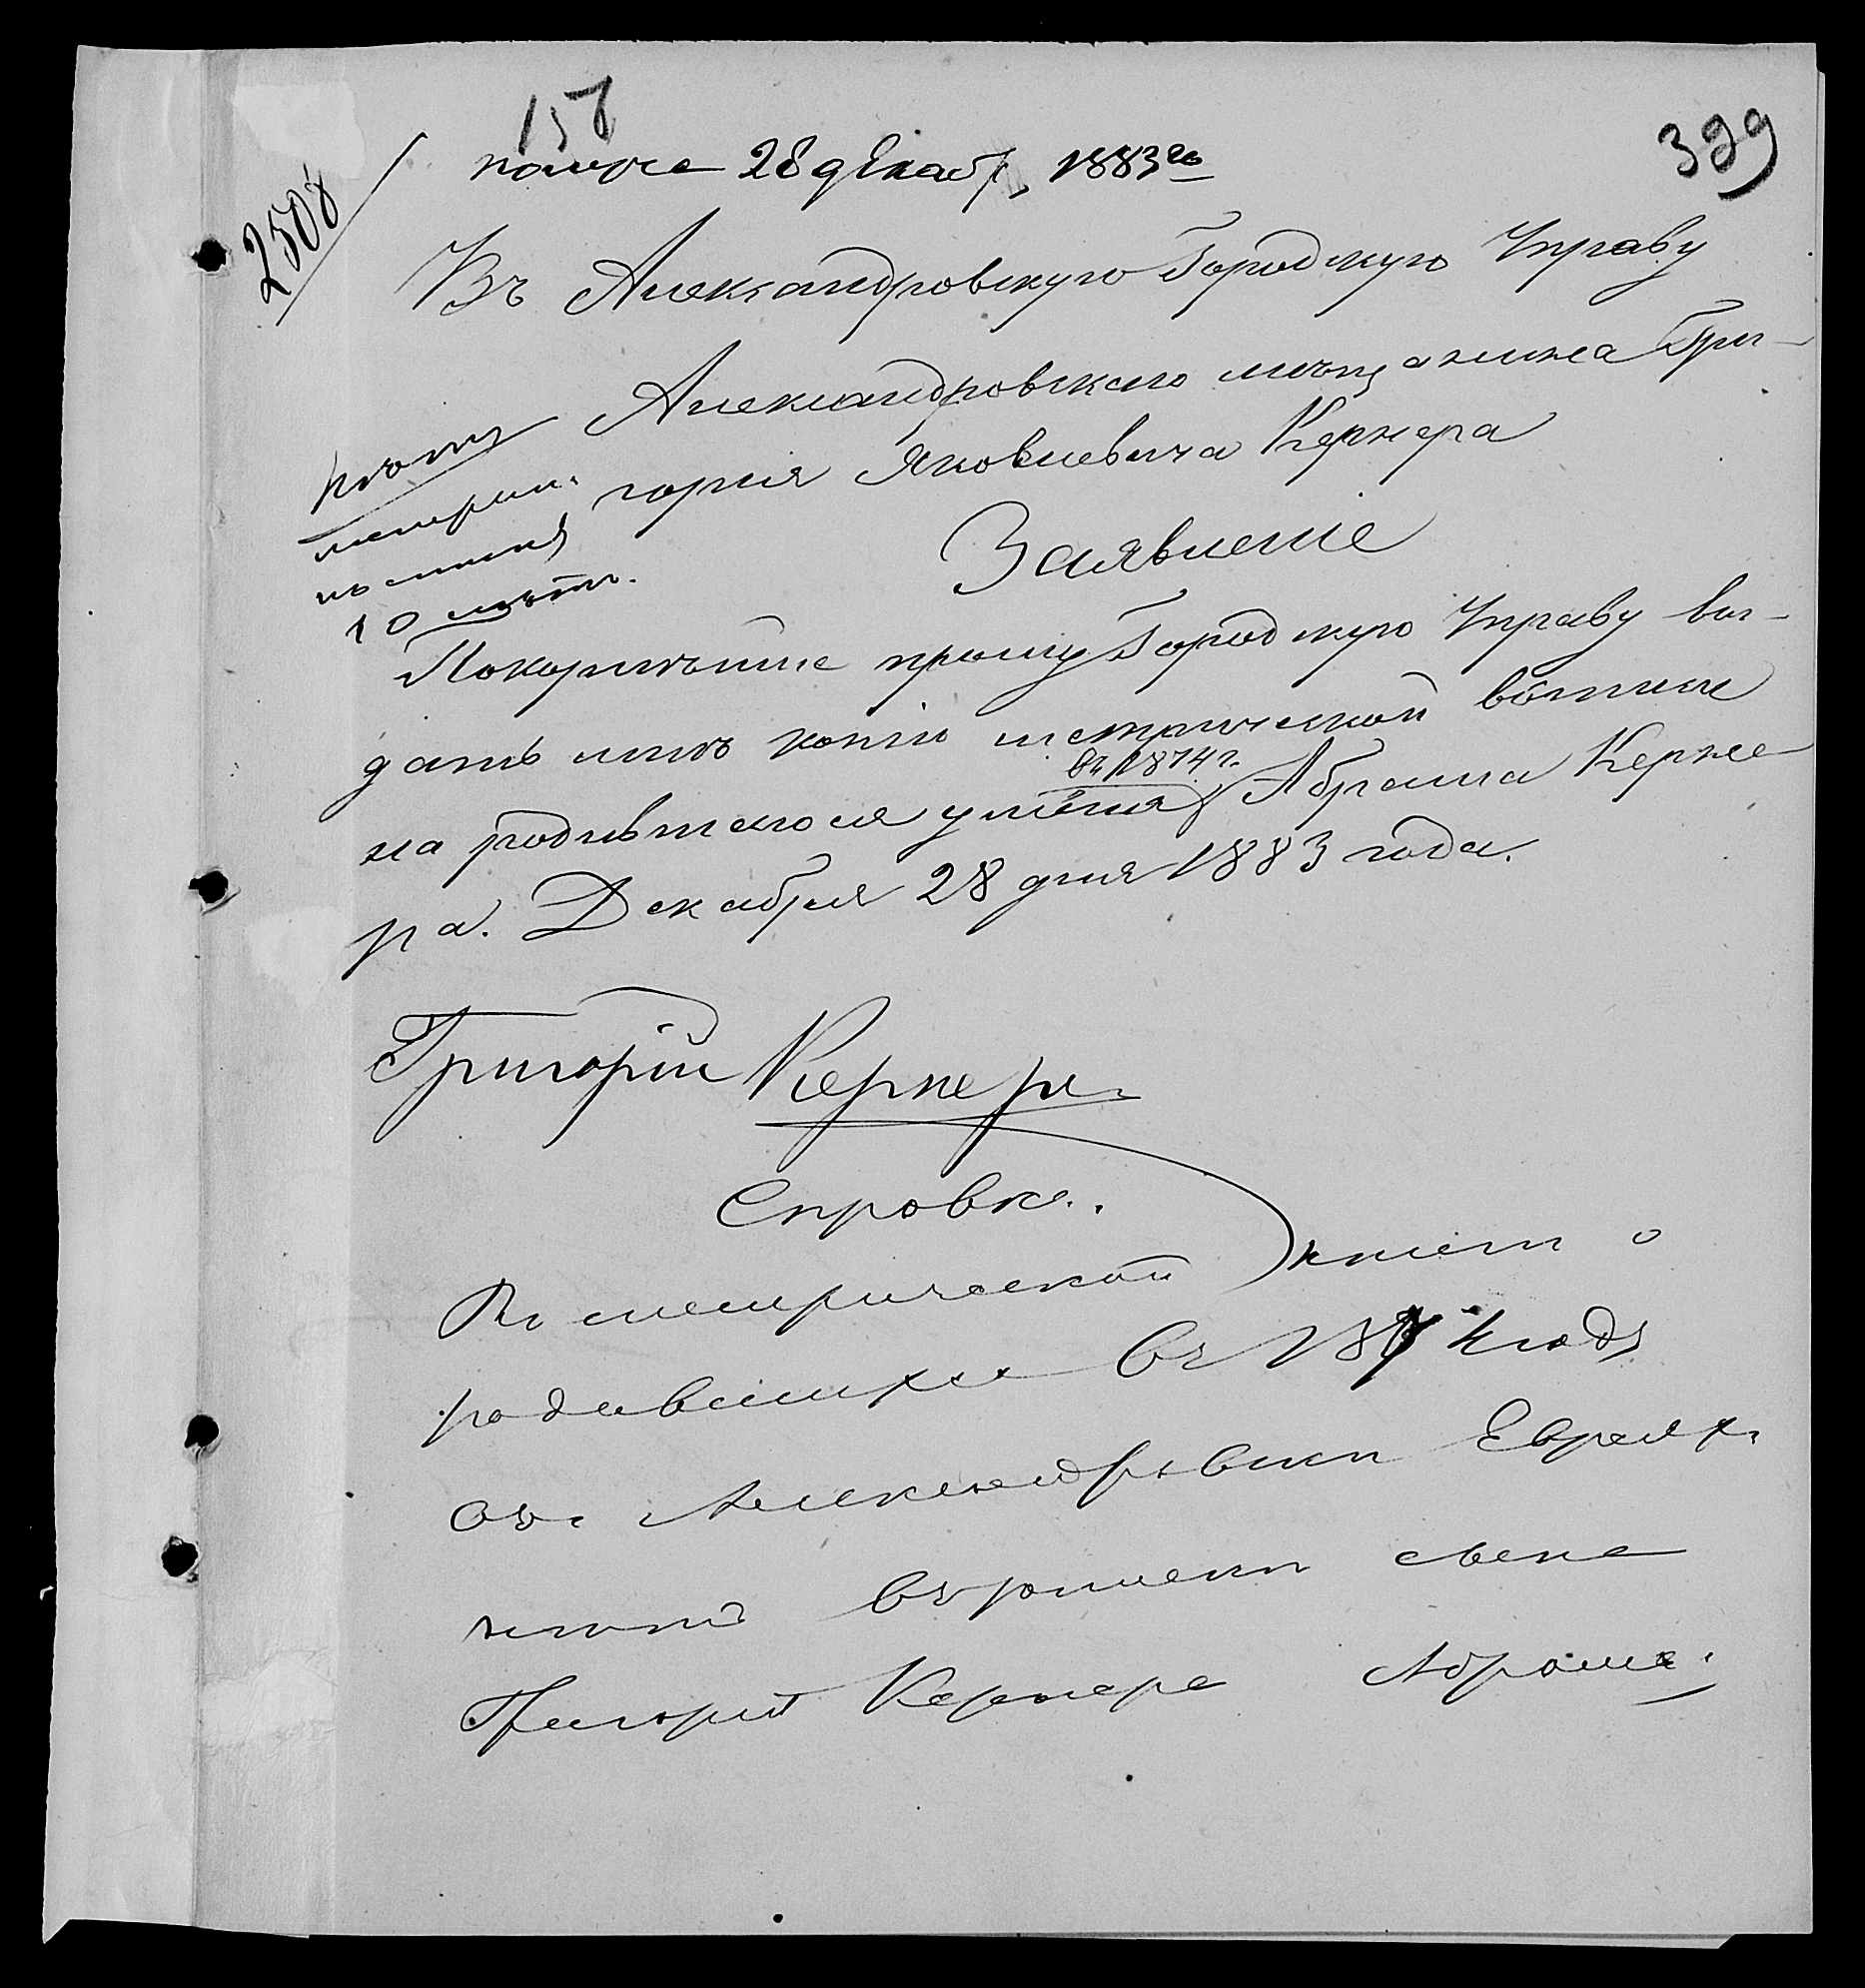 157
399
2508
получе 28 декаб, 1883го
Въ Александровскую Городскую Управу
Александровскаго мѣщанина Гри-
горія Яковлевича Кернера
Заявленіе
10 лѣтъ.
Покорнѣйше прошу Городскую Управу вы-
дать мнѣ копію метрической выписи
въ 1874 г.
на родившагося у меня Абрама Керне
ра. Декабря 28 дня 1883 года.
Григорій Кернеръ
Справка.
Въ метрической книги о
родившихся въ 1874 году
въ Александровски Евреях
сына
Григорія Кернера Абрама.